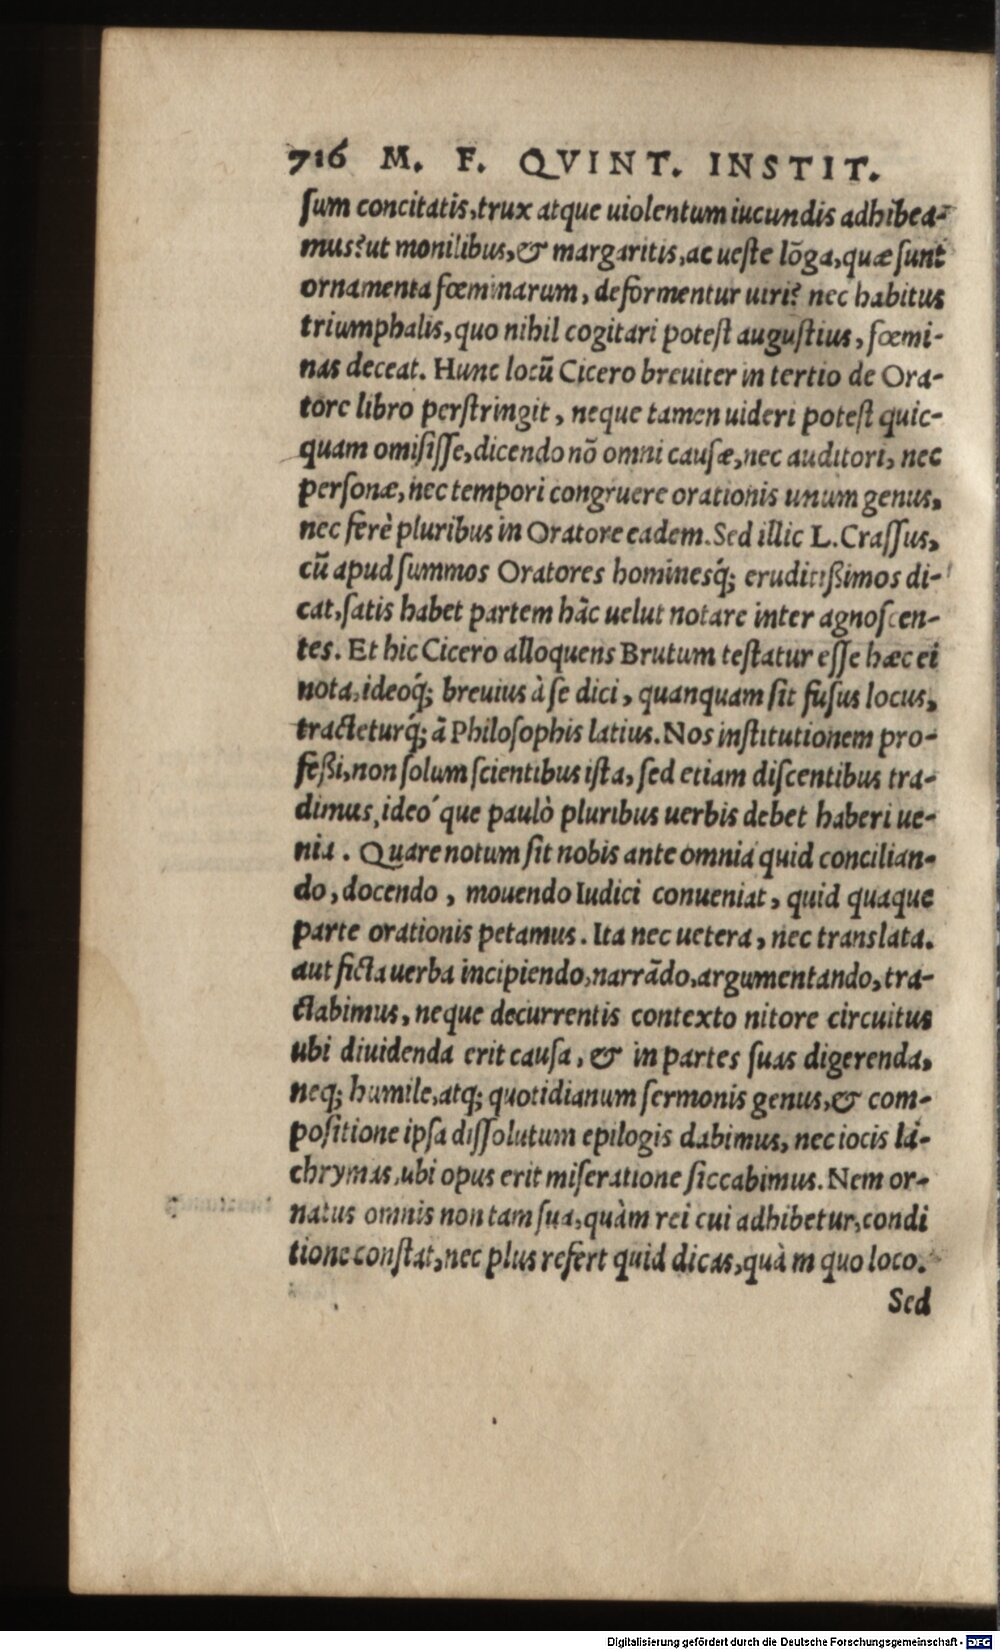 716 M. F. QVINT. INSTIT.
ſum concitatis,trux atque uiolentum iucundis adhibea-
mus?ut monilibus,& margaritis,ac ueſte lōga,quæ ſunt
ornamenta fœminarum, deformentur uiri? nec habitus
triumphalis, quo nihil cogitari poteſt auguſtius, fœmi-
nas deceat. Hunc locū Cicero breuiter in tertio de Ora-
tore libro perſtringit, neque tamen uideri poteſt quic-
quam omiſiſſe,dicendo nō omni cauſæ,nec auditori, nec
perſonæ, nec tempori congruere orationis unum genus,
nec ferè pluribus in Oratore eadem. Sed illic L. Craſſus,
cū apud ſummos Oratores hominesq́; eruditißimos di-
cat,ſatis habet partem hāc uelut notare inter agnoſcen-
tes. Et hic Cicero alloquens Brutum teſtatur eſſe hæc ei
nota,ideoq́; breuius à ſe dici, quanquam ſit fuſus locus,
tracteturq́; ā Philoſophis latius. Nos inſtitutionem pro-
feßi,non ſolum ſcientibus iſta, ſed etiam diſcentibus tra-
dimus, ideó que paulò pluribus uerbis debet haberi ue-
nia. Quare notum ſit nobis ante omnia quid concilian-
do, docendo, mouendo Iudici conueniat, quid quaque
parte orationis petamus. Ita nec uetera, nec translata.
aut ficta uerba incipiendo,narrādo,argumentando, tra-
ctabimus, neque decurrentis contexto nitore circuitus
ubi diuidenda erit cauſa, & in partes ſuas digerenda,
neq; humile,atq; quotidianum ſermonis genus,& com-
poſitione ipſa diſſolutum epilogis dabimus, nec iocis la-
chrymas,ubi opus erit miſeratione ſiccabimus. Nem or-
natus omnis non tam ſua,quàm rei cui adhibetur,condi
tione conſtat,nec plus refert quid dicas,quà m quo loco.
Sed
Digitalisierung gefördert durch die Deutsche Forschungsgemeinschaft - DFG